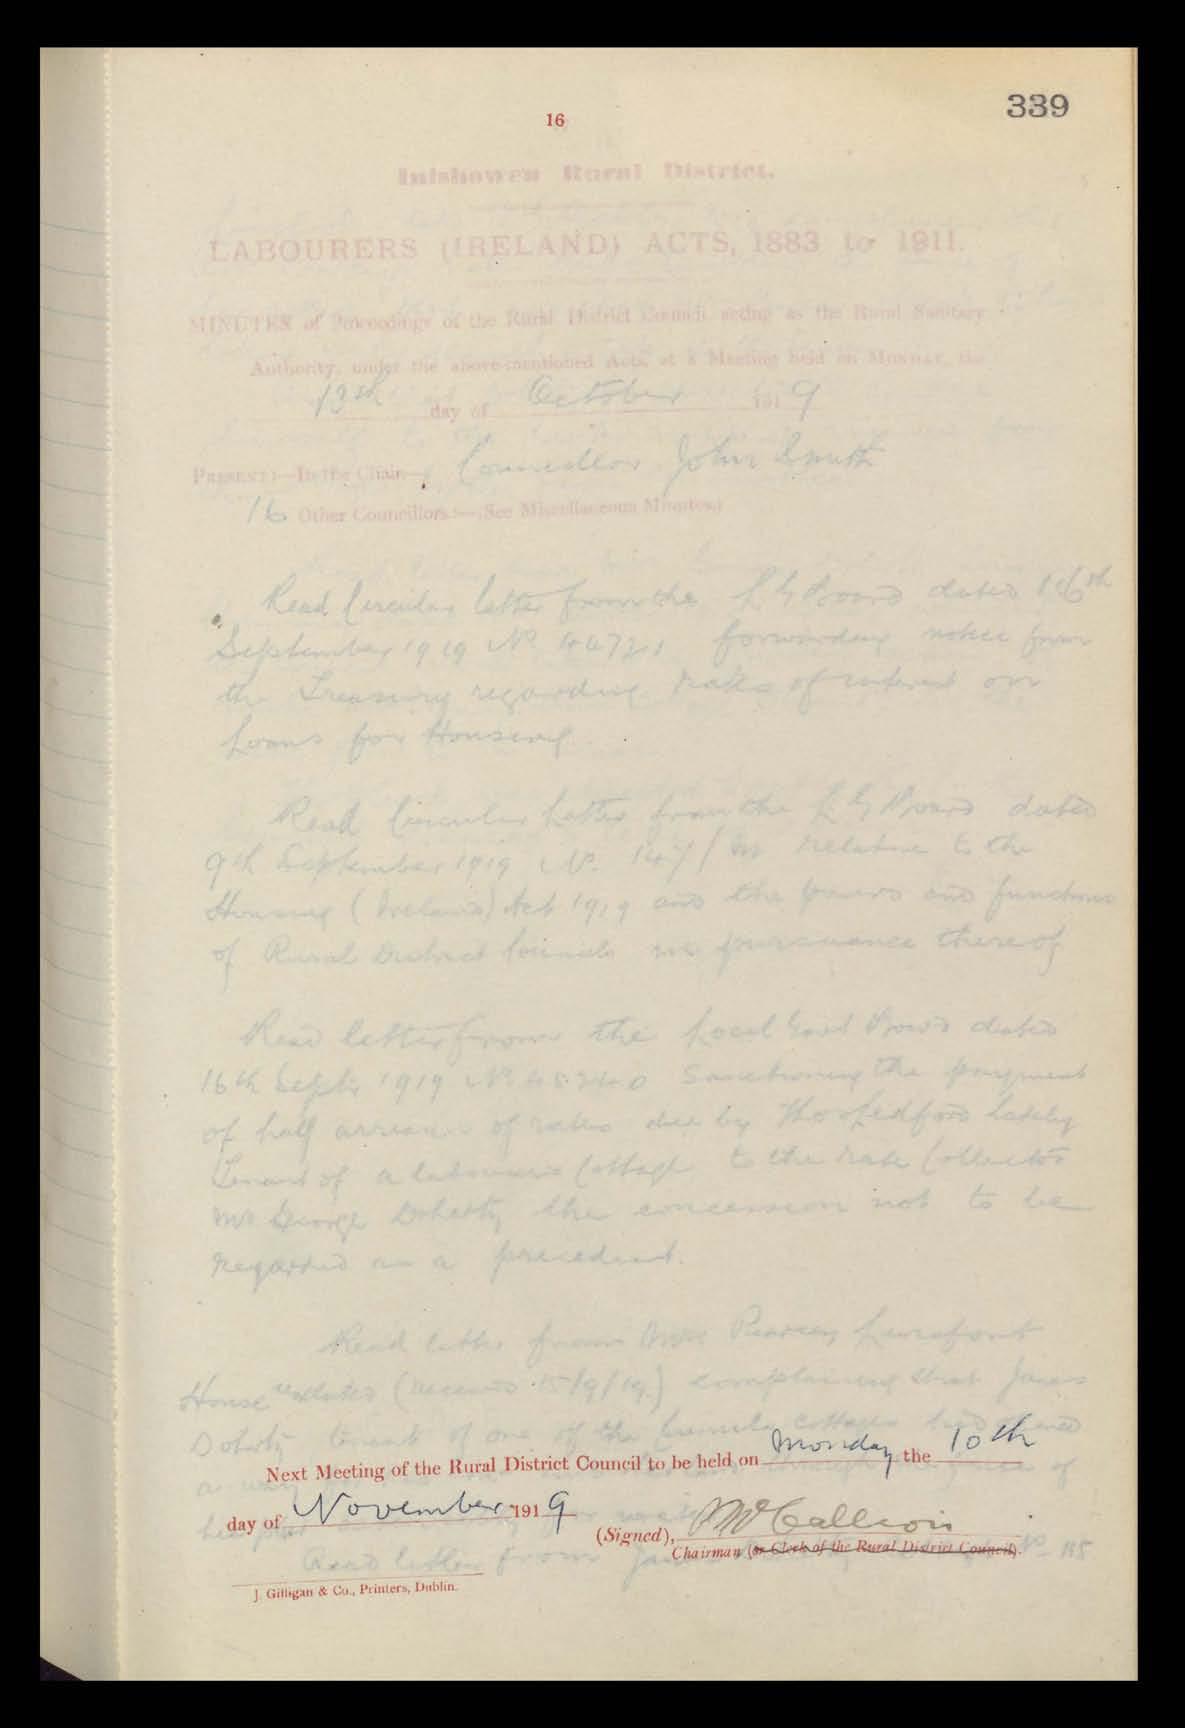 339
16
Inishowen Rural District.
LABOURERS (IRELAND) ACTS, 1883 to 1911.
MINUTES of Proceedings of the Rural District Council, acting as the Rural Sanitary
Authority, under the above-mentioned Acts, at a Meeting held on MONDAY, the
13th day of October 1919
PRESENT:—In the Chair— Councillor John Smith
16 Other Councillors:—(See Miscellaneous Minutes.)
Read Circular letter from the L G Board dated 16th
September 1919 No forwarding notice from
the Treasury regarding rates of interest on
Loans for Housing.
Read Circular Letter from the L G Board dated
9th September 1919 No. relative to the
Housing (Ireland) Act 1919 and the powers and functions
of Rural District Councils in pursuance thereof
Read letter from the Local Govt Board dated
16th Septr 1919 No sanctioning the payment
of half arrears of rates due by lately
Tenant of a labourers Cottage to the Rate Collector
Mr George Doherty the concession not to be
regarded as a precedent.
Read letter from
House (received 15/9/19.) complaining that James
Doherty tenant of one of the cottages had
a way of
Next Meeting of the Rural District Council to be held on Monday the 10th
day of November 1919
(Signed), McCallion
Chairman (or Clerk of the Rural District Council).
Read letter from
J. Gilligan & Co., Printers, Dublin.